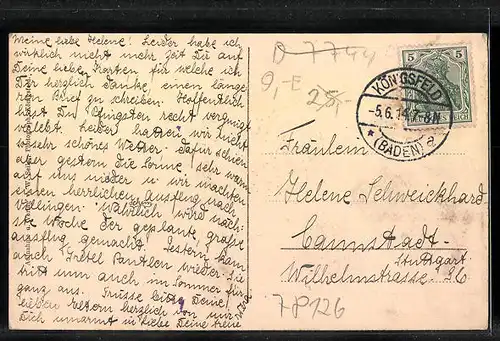 Meine liebe Helene! Leider habe ich
wirklich nicht mehr Zeit Dir auf
Deine lieben Karten für welche ich
Dir herzlich danke, einen länge-
ren Brief zu schreiben. Hoffentlich
hast Du Pfingsten recht vergnügt
verlebt. Leider hatten wir nicht
sehr schönes Wetter. Dafür schien
aber gestern die Sonne sehr warm
auf uns nieder u. wir machten
einen herrlichen Ausflug nach
Villingen. Wahrlich wird näch-
ste Woche der geplante, große
Ausflug gemacht. Gestern kam
auch Gretel wieder. Sie
tritt nun auch im Sommer für
ganz aus. Grüsse bitte Deine
lieben Eltern herzlich von mir.
Dich umarmt in Liebe Deine treue
D 7744
9,-E
25,-
5 5
REICH
KÖNIGSFELD
-5.6.14.7-8N
* (BADEN) a
Fräulein
Helene Schweickhard
Cannstadt-
Stuttgart.
Wilhelmstrasse 26
7P126